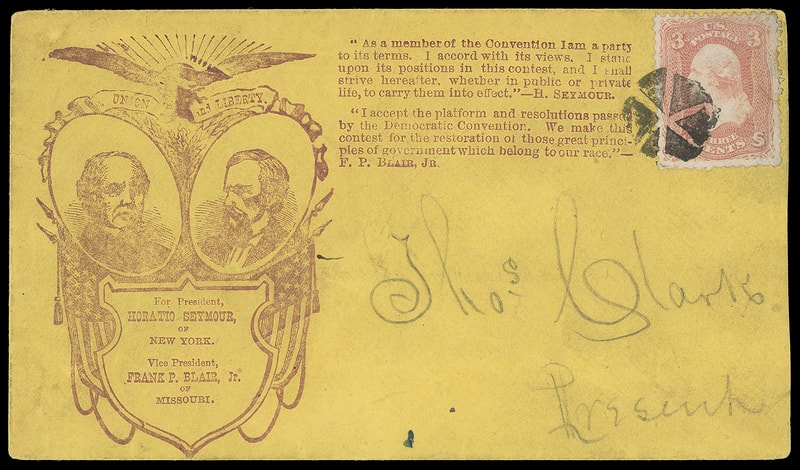 UNION and LIBERTY.
For President,
HORATIO SEYMOUR,
OF
NEW YORK.
Vice President,
FRANK P. BLAIR, Jr.
OF
MISSOURI.
" As a member of the Convention I am a party
to its terms. I accord with its views. I stand
upon its positions in this contest, and I shall
strive hereafter, whether in public or private
life, to carry them into effect."—H. SEYMOUR.
"I accept the platform and resolutions passed
by the Democratic Convention. We make this
contest for the restoration of those great princi-
ples of government which belong to our race."—
F. P. BLAIR, JR.
U.S.
POSTAGE
3 3
THREE
CENTS
Thos. Clark.
Present